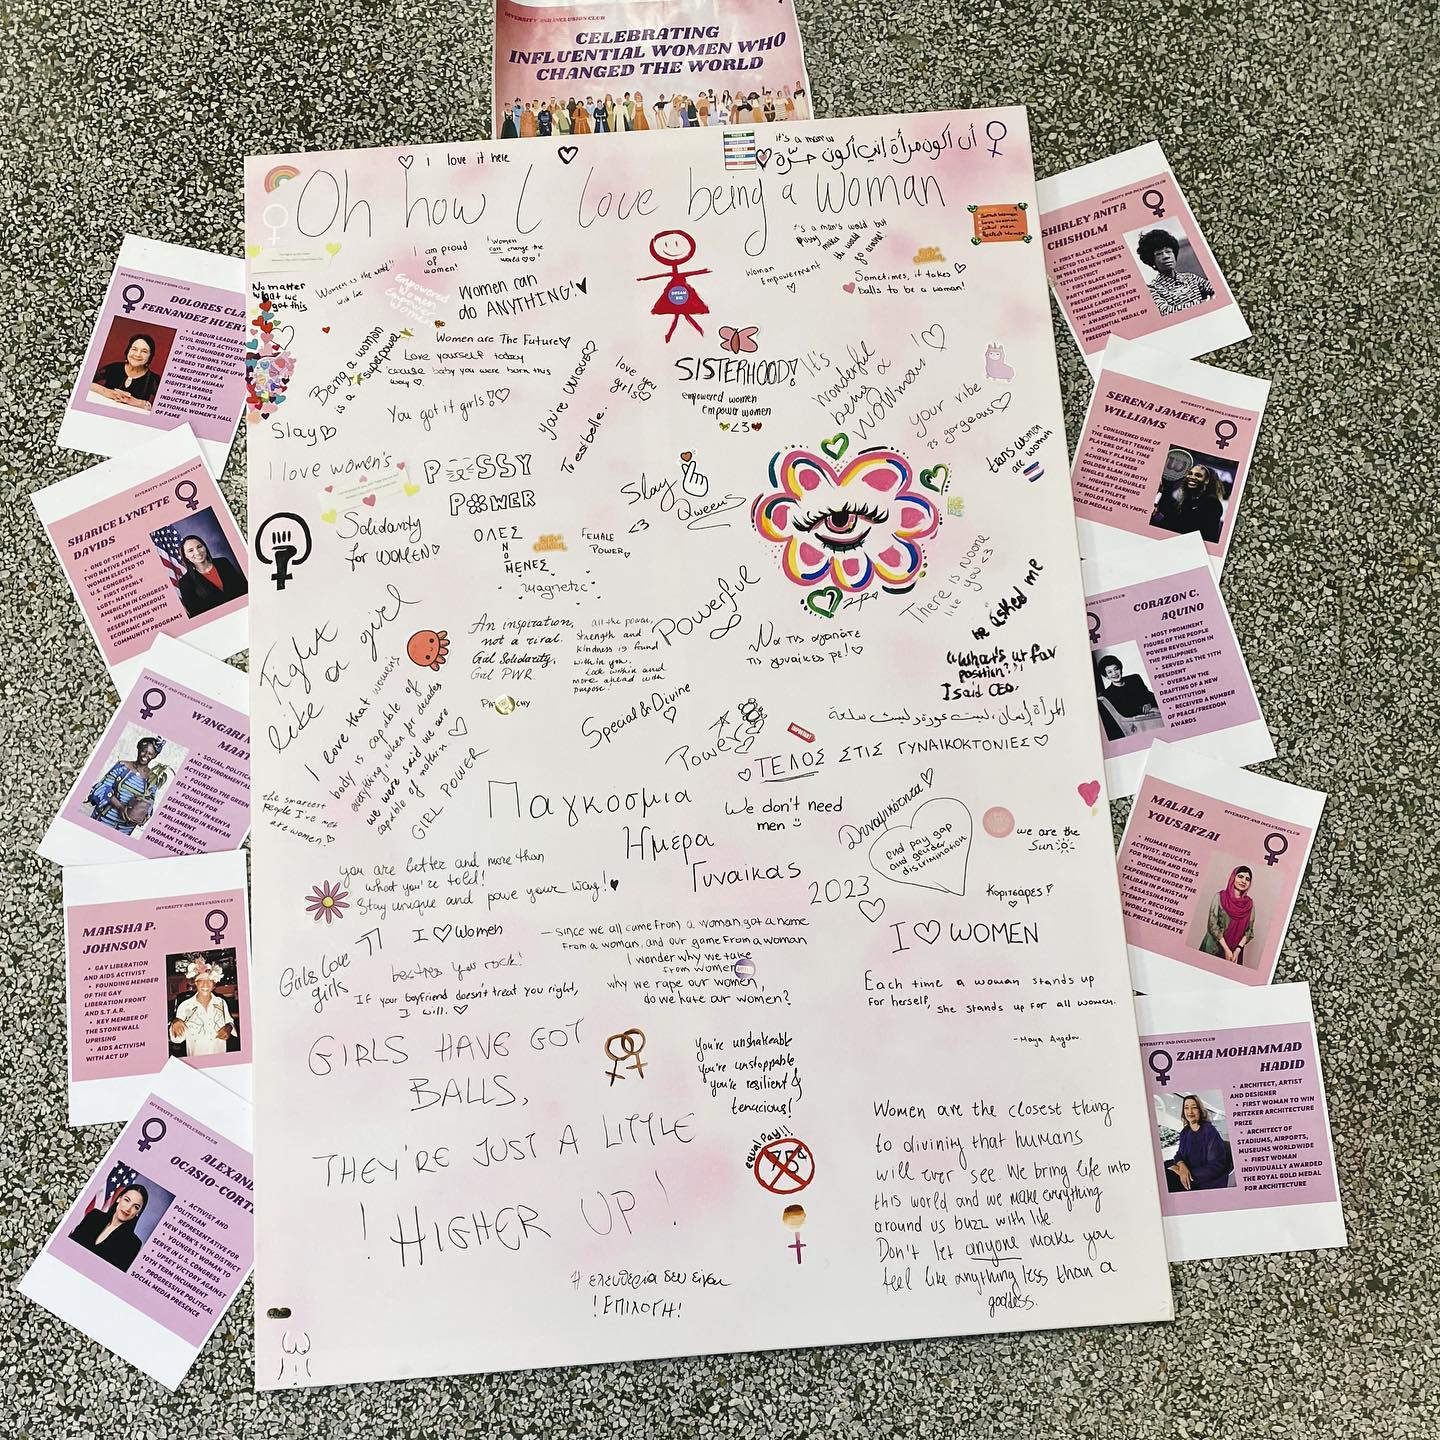 DIVERSITY AND INCLUSION CLUB
CELEBRATING
INFLUENTIAL WOMEN WHO
CHANGED THE WORLD
I love it here
it's a man's
أن أكون مرأة إني أكون حرّة
Oh how I love being a Woman
I am proud
of
women!
Women
can change the
world
it's a man's world but
pussy makes
the world
go around!
Woman
Empowerment
Sometimes, it takes
balls to be a woman!
No matter
what we
got this
Empowered
Women
Empower
Women
Women can
do ANYTHING!
DREAM
BIG
Being a woman
is a superpower
Women are The Future
Love yourself today
'cause baby you were born this
way
You got it girls!
Slay
YOU'RE UNIQUE
Tu es belle.
love you
girls
SISTERHOOD!
empowered women
empower women
<3
It's
wonderful
being a
WOMman!
your vibe
is gorgeous
trans women
are women
I love women's
P SSY
POWER
Slay
Qweens
Solidarity
for WOMEN
ΟΛΕΣ
ΕΝΩΜΕΝΕΣ
Stay
Golden
FEMALE
POWER
<3
magnetic
There is noone
like you <3
Fight
like a girl
I love that women's
body is capable of
everything when for decades
we were said we are
capable of nothin
GIRL POWER
An inspiration,
not a rival.
Girl Solidarity,
Girl PWR.
all the power,
strength and
kindness is found
within you.
Look within and
move ahead with
purpose!
Powerful
Να τις αγαπάτε
τις γυναίκες ρε!
He asked me
"What's ur fav
position?",
I said CEO.
PATRIARCHY
Special & Divine
Power
IMPORTANT
المرأة إنسان، ليست عورة و ليست سلعة
ΤΕΛΟΣ ΣΤΙΣ ΓΥΝΑΙΚΟΚΤΟΝΙΕΣ
the smartest
people I've met
are women
Παγκόσμια
Ημέρα
Γυναίκας
2023
We don't need
men
Δυναμικότητα
end pay gap
and gender
discrimination
we are the
Sun
Κοριτσάρες!
you are better and more than
what you're told!
Stay unique and pave your way!
I Women
Girls love
girls
besties you rock!
If your boyfriend doesn't treat you right,
I will.
— Since we all came from a woman, got a name
from a woman, and our game from a woman
I wonder why we take
from women
why we rape our women,
do we hate our women?
I WOMEN
Each time a woman stands up
for herself, she stands up for all women.
- Maya Angelou
GIRLS HAVE GOT
BALLS,
THEY'RE JUST A LITTLE
! HIGHER UP !
You're unshakeable
you're unstoppable
you're resilient &
tenacious!
equal Pay!!
Women are the closest thing
to divinity that humans
will ever see. We bring life into
this world and we make everything
around us buzz with life.
Don't let anyone make you
feel like anything less than a
goddess.
Η ελευθερία δεν είναι
! ΕΠΙΛΟΓΗ!
DIVERSITY AND INCLUSION CLUB
DOLORES CLA
FERNANDEZ HUERT
• LABOUR LEADER AN
CIVIL RIGHTS ACTIVIST
• CO-FOUNDER OF ONE
OF THE UNIONS THAT
MERGED TO BECOME UFW
• RECIPIENT OF A
NUMBER OF HUMAN
RIGHTS AWARDS
• FIRST LATINA
INDUCTED INTO THE
NATIONAL WOMEN'S HALL
OF FAME
DIVERSITY AND INCLUSION CLUB
SHARICE LYNETTE
DAVIDS
• ONE OF THE FIRST
TWO NATIVE AMERICAN
WOMEN ELECTED TO
U.S. CONGRESS
• FIRST OPENLY
LGBT+ NATIVE
AMERICAN IN CONGRESS
• HELPS NUMEROUS
RESERVATIONS WITH
ECONOMIC AND
COMMUNITY PROGRAMS
DIVERSITY AND INCLUSION CLUB
WANGARI M
MAAT
• SOCIAL, POLITICA
AND ENVIRONMENTAL
ACTIVIST
• FOUNDED THE GREEN
BELT MOVEMENT
• FOUGHT FOR
DEMOCRACY IN KENYA
AND SERVED IN KENYAN
PARLIAMENT
• FIRST AFRICAN
WOMAN TO WIN THE
NOBEL PEACE
DIVERSITY AND INCLUSION CLUB
MARSHA P.
JOHNSON
• GAY LIBERATION
AND AIDS ACTIVIST
• FOUNDING MEMBER
OF THE GAY
LIBERATION FRONT
AND S.T.A.R.
• KEY MEMBER OF
THE STONEWALL
UPRISING
• AIDS ACTIVISM
WITH ACT UP
DIVERSITY AND INCLUSION CLUB
ALEXAND
OCASIO-CORT
• ACTIVIST AND
POLITICIAN
• REPRESENTATIVE FOR
NEW YORK'S 14TH DISTRICT
• YOUNGEST WOMAN TO
SERVE IN U.S. CONGRESS
• UPSET VICTORY AGAINST
10TH TERM INCUMBENT
• PROGRESSIVE POLITICAL
SOCIAL MEDIA PRESENCE
DIVERSITY AND INCLUSION CLUB
SHIRLEY ANITA
CHISHOLM
• FIRST BLACK WOMAN
ELECTED TO U.S. CONGRESS
IN 1968 FOR NEW YORK'S
12TH DISTRICT
• FIRST BLACK MAJOR-
PARTY NOMINATION FOR
PRESIDENT AND FIRST
FEMALE CANDIDATE FOR
THE DEMOCRATIC PARTY
• AWARDED THE
PRESIDENTIAL MEDAL OF
FREEDOM
DIVERSITY AND INCLUSION CLUB
SERENA JAMEKA
WILLIAMS
• CONSIDERED ONE OF
THE GREATEST TENNIS
PLAYERS OF ALL TIME
• ONLY PLAYER TO
ACHIEVE A CAREER
GOLDEN SLAM IN BOTH
SINGLES AND DOUBLES
• HIGHEST EARNING
FEMALE ATHLETE
• HOLDS FOUR OLYMPIC
GOLD MEDALS
DIVERSITY AND INCLUSION CLUB
CORAZON C.
AQUINO
• MOST PROMINENT
FIGURE OF THE PEOPLE
POWER REVOLUTION IN
THE PHILIPPINES
• SERVED AS THE 11TH
PRESIDENT
• OVERSAW THE
DRAFTING OF A NEW
CONSTITUTION
• RECEIVED A NUMBER
OF PEACE/FREEDOM
AWARDS
DIVERSITY AND INCLUSION CLUB
MALALA
YOUSAFZAI
• HUMAN RIGHTS
ACTIVIST, EDUCATION
FOR WOMEN AND GIRLS
• DOCUMENTED HER
EXPERIENCE UNDER THE
TALIBAN IN PAKISTAN
• ASSASSINATION
TEMPT, RECOVERED
WORLD'S YOUNGEST
BEL PRIZE LAUREATE
DIVERSITY AND INCLUSION CLUB
ZAHA MOHAMMAD
HADID
• ARCHITECT, ARTIST
AND DESIGNER
• FIRST WOMAN TO WIN
PRITZKER ARCHITECTURE
PRIZE
• ARCHITECT OF
STADIUMS, AIRPORTS,
MUSEUMS WORLDWIDE
• FIRST WOMAN
INDIVIDUALLY AWARDED
THE ROYAL GOLD MEDAL
FOR ARCHITECTURE